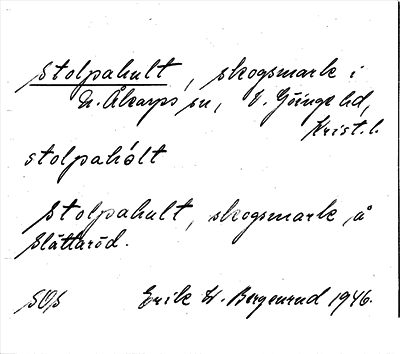 Stolpahult, skogsmark i
N. Åkarps sn, V. Göinge hd,
Krist. l.
stolpahólt
Stolpahult, skogsmark å
Slättaröd.
SOS Erik W. Bergenrud 1946.